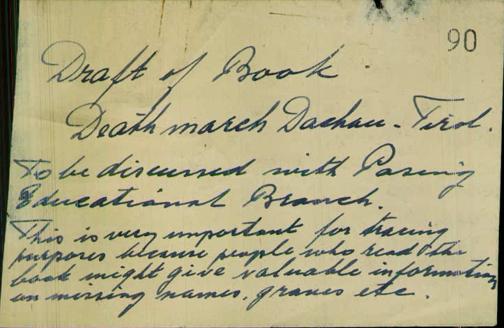 90
Draft of Book
Death march Dachau - Tirol.
To be discussed with Pasing
Educational Branch.
This is very important for tracing
purposes because people who read the
book might give valuable information
on missing names, graves etc.